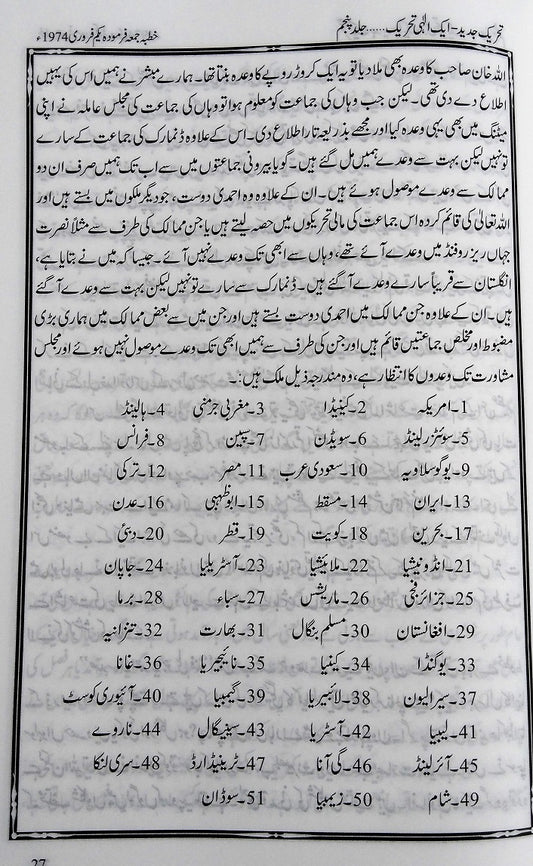 تحریک جدید - ایک الٰہی تحریک ...... جلد پنجم
خطبہ جمعہ فرمودہ یکم فروری 1974ء
اللہ خان صاحب کا وعدہ بھی ملا دیا تو یہ ایک کروڑ روپے کا وعدہ بنتا تھا۔ ہمارے مبشر نے ہمیں اس کی یہیں
اطلاع دے دی تھی۔ لیکن جب وہاں کی جماعت کو معلوم ہوا تو وہاں کی جماعت کی مجلس عاملہ نے اپنی
میٹنگ میں بھی یہی وعدہ کیا اور مجھے بذریعہ تار اطلاع دی۔ اس کے علاوہ ڈنمارک کی جماعت کے سارے
تو نہیں لیکن بہت سے وعدے ہمیں مل گئے ہیں۔ گویا بیرونی جماعتوں میں سے اب تک ہمیں صرف ان دو
ممالک سے وعدے موصول ہوئے ہیں۔ ان کے علاوہ وہ احمدی دوست، جو دیگر ملکوں میں بستے ہیں اور
اللہ تعالیٰ کی قائم کردہ اس جماعت کی مالی تحریکوں میں حصہ لیتے ہیں یا جن ممالک کی طرف سے مثلاً نصرت
جہاں ریزروفنڈ میں وعدے آئے تھے، وہاں سے ابھی تک وعدے نہیں آئے۔ جیسا کہ میں نے بتایا ہے،
انگلستان سے قریباً سارے وعدے آ گئے ہیں۔ ڈنمارک سے سارے تو نہیں لیکن بہت سے وعدے آ گئے
ہیں۔ ان کے علاوہ جن ممالک میں احمدی دوست بستے ہیں اور جن میں سے بعض ممالک میں ہماری بڑی
مضبوط اور مخلص جماعتیں قائم ہیں اور جن کی طرف سے ہمیں ابھی تک وعدے موصول نہیں ہوئے اور مجلس
مشاورت تک وعدوں کا انتظار ہے، وہ مندرجہ ذیل ملک ہیں:۔
1۔ امریکہ 2۔ کینیڈا 3۔ مغربی جرمنی 4۔ ہالینڈ
5۔ سوئٹزرلینڈ 6۔ سویڈن 7۔ سپین 8۔ فرانس
9۔ یوگوسلاویہ 10۔ سعودی عرب 11۔ مصر 12۔ ترکی
13۔ ایران 14۔ مسقط 15۔ ابوظہبی 16۔ عدن
17۔ بحرین 18۔ کویت 19۔ قطر 20۔ دبئ
21۔ انڈونیشیا 22۔ ملائیشیا 23۔ آسٹریلیا 24۔ جاپان
25۔ جزائر فجی 26۔ ماریشس 27۔ سباء 28۔ برما
29۔ افغانستان 30۔ مسلم بنگال 31۔ بھارت 32۔ تنزانیہ
33۔ یوگنڈا 34۔ کینیا 35۔ نائیجیریا 36۔ غانا
37۔ سیرالیون 38۔ لائبیریا 39۔ گیمبیا 40۔ آئیوری کوسٹ
41۔ لیبیا 42۔ آسٹریا 43۔ سینیگال 44۔ ناروے
45۔ آئرلینڈ 46۔ گی آنا 47۔ ٹرینیڈارڈ 48۔ سری لنکا
49۔ شام 50۔ زیمبیا 51۔ سوڈان
27